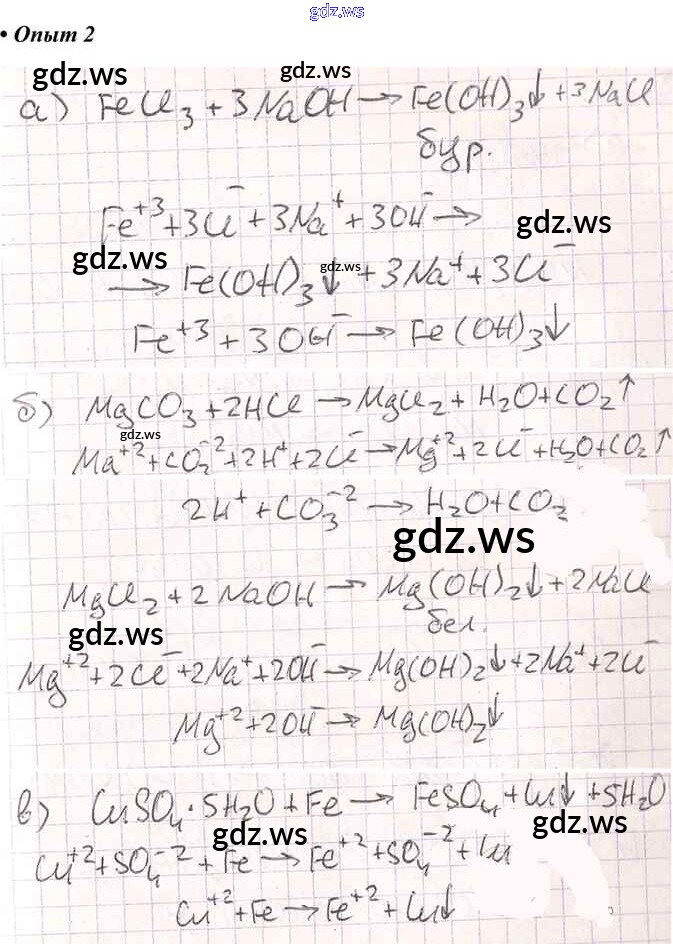 gdz.ws
• Опыт 2
gdz.ws gdz.ws
а) FeCl₃ + 3NaOH → Fe(OH)₃↓ + 3NaCl
бур.
Fe⁺³ + 3Cl⁻ + 3Na⁺ + 3OH⁻ →
gdz.ws
gdz.ws
→ Fe(OH)₃↓ + 3Na⁺ + 3Cl⁻
gdz.ws
Fe⁺³ + 3OH⁻ → Fe(OH)₃↓
б) MgCO₃ + 2HCl → MgCl₂ + H₂O + CO₂↑
gdz.ws
Ma⁺² + CO₂⁻² + 2H⁺ + 2Cl⁻ → Mg⁺² + 2Cl⁻ + H₂O + CO₂↑
2H⁺ + CO₃⁻² → H₂O + CO₂
gdz.ws
MgCl₂ + 2NaOH → Mg(OH)₂↓ + 2NaCl
бел.
gdz.ws
Mg⁺² + 2Cl⁻ + 2Na⁺ + 2OH⁻ → Mg(OH)₂↓ + 2Na⁺ + 2Cl⁻
Mg⁺² + 2OH⁻ → Mg(OH)₂↓
в) CuSO₄·5H₂O + Fe → FeSO₄ + Cu↓ + 5H₂O
gdz.ws gdz.ws
Cu⁺² + SO₄⁻² + Fe → Fe⁺² + SO₄⁻² + Cu
Cu⁺² + Fe → Fe⁺² + Cu↓